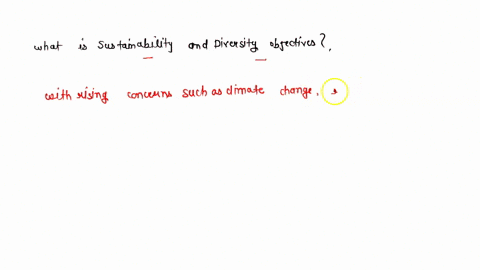 what is Sustainability and Diversity objectives?,
with rising concerns such as climate change, s